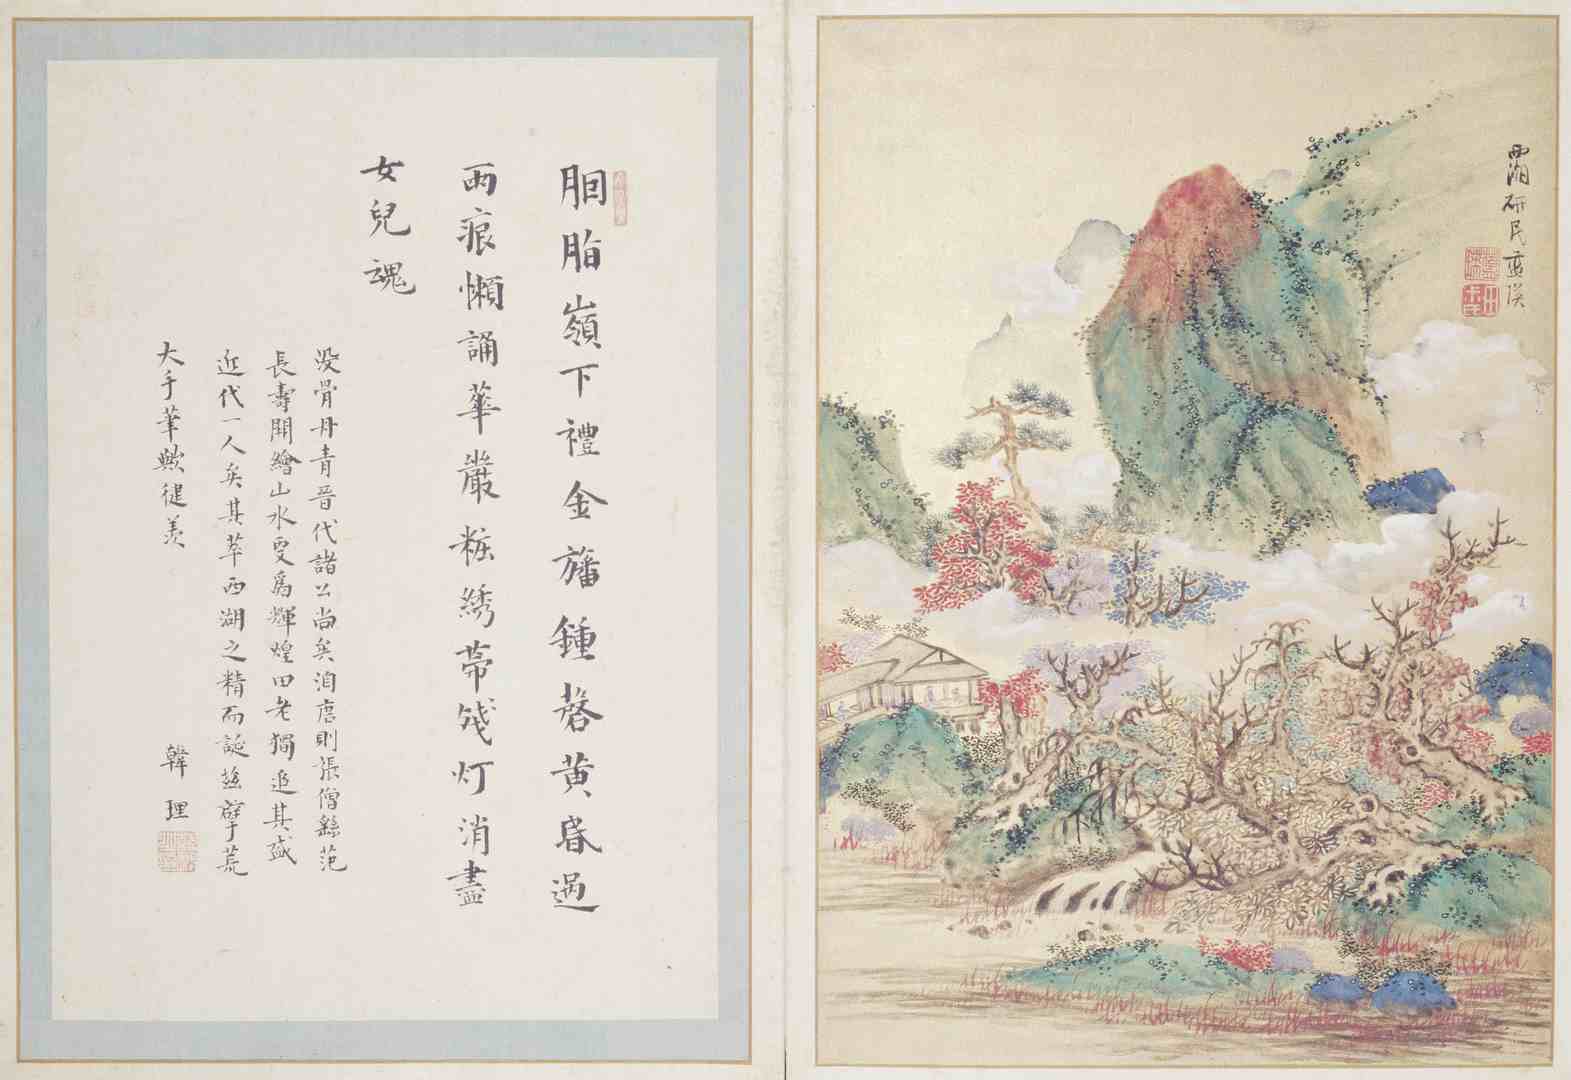 西湖研民藍瑛
胭脂嶺下禮金旛鍾磬黄昏過
雨痕懶誦華嚴粧綉帶殘灯消盡
女兒魂
沒骨丹青晉代諸公尚矣洎唐則張僧繇范
長壽開繪山水叟爲輝煌田老獨追其盛
近代一人矣其萃西湖之精而誕兹擘荒
大手筆歟徤羡
韓理